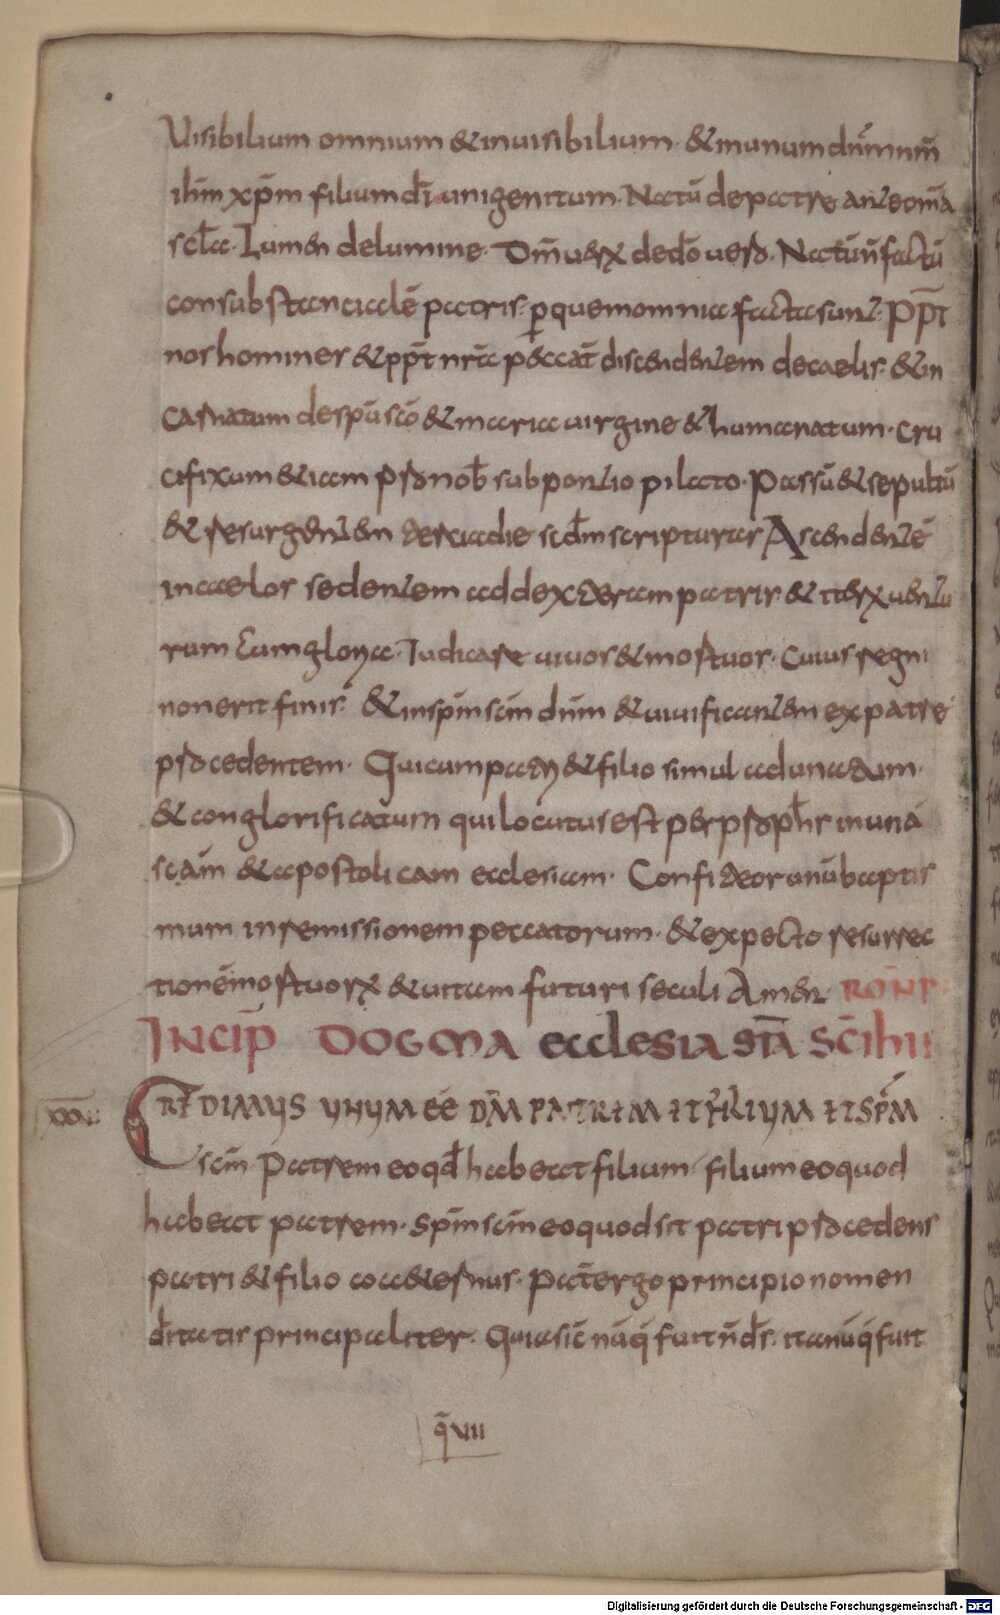 Uisibilium omnium & inuisibilium · & in unum dn̄m nr̄m
ih̄m xp̄m filium dī unigenitum · Natū de patre ante om̄a
scl̄a · Lumen de lumine · Dm̄ uerx de dō uero · Natū n̄ factū
consubstancialē patris · ꝑ quem omnia facta sunt · Pp̄t
nos homines & pp̄t nr̄a peccat̄ discendentem de caelis · & in
carnatum de spū scō & maria uirgine & humanatum · cru
cifixum &iam pro nob̄ sub pontio pilato · Passū & sepultū
& resurgentem tertia die scd̄m scripturas Ascendentē
in caelos sedentem ad dexteram patris & iterx uentu
rum cum gloria · Iudicare uiuos & mortuos · cuius regni
non erit finis · & in sp̄m scm̄ dn̄m & uiuificantem ex patre
procedentem · Qui cum patri & filio simul adunatum ·
& conglorificatum qui locutus est per proph̄s in unā
scam̄ & apostolicam ecclesiam · Confiteor unū baptis
mum in remissionem peccatorum · & expecto resurrec
tionē mortuorx & uitam futuri seculi Amen ·
INCIP̄ DOGMA ecclesiasticā
xxvii CREDIMUS UNUM EĒ DM̄ PATREM ET FILIUM ET SPM̄
scm̄ Patrem eo qd̄ habeat filium · filium eo quod
habeat patrem · Spm̄ scm̄ eo quod sit patri procedens
patri & filio coaeternus · Pat̄ ergo principio nomen
d̄itatis principaliter · Quia sic nūq̄ fuit n̄ dr̄s · ita nūq̄ fuit
q̄ vii
Digitalisierung gefördert durch die Deutsche Forschungsgemeinschaft - DFG